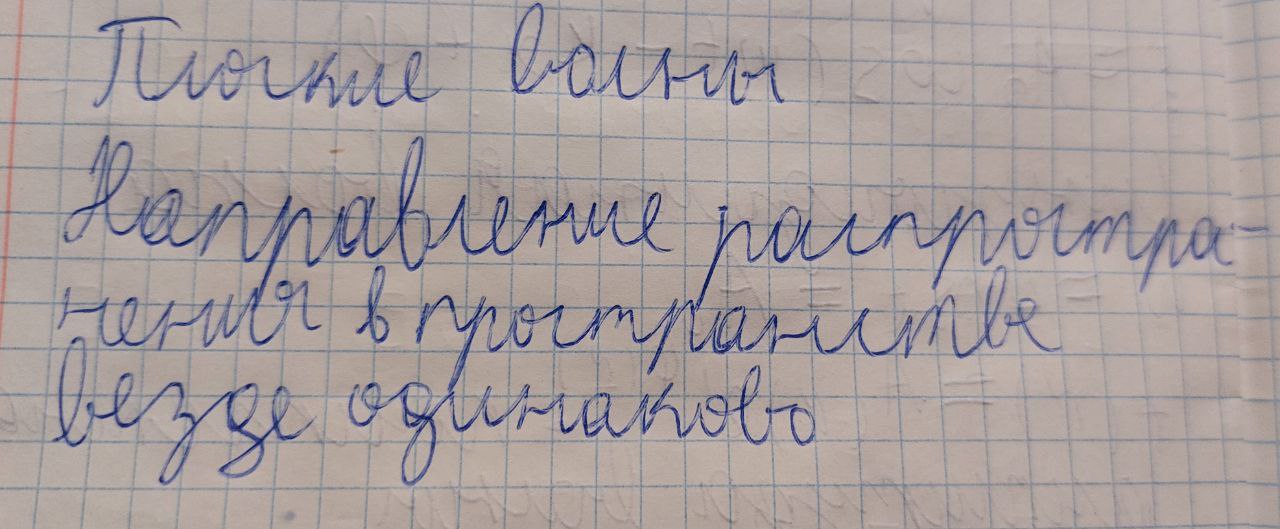 Плоские волны
Направление распростра-
нения в пространстве
везде одинаково